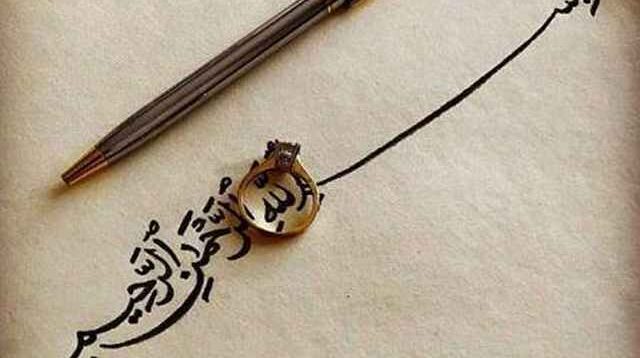 بسم اللَّهِ الرَّحْمَنِ الرَّحِيم